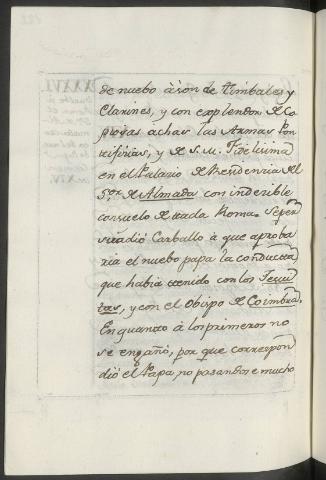 de nuebo à són de timbales y
Clarines, y con explendor de Co
piosas achas las Armas Pon
tificias, y de S. M. Fidelisima
en el Palacio de Residencia del
S.or de Almada con indecible
consuelo de toda Roma. Se per
suadió Carballo à que aproba
ria el nuebo papa la conducta
que habia tenido con los Jesui
tas, y con el Obispo de Coimbra.
En quanto à los primeros no
se engañó, por que correspon
dió el Papa, no pasandose mucho